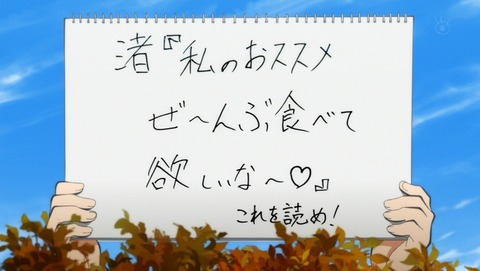 渚『私のおススメ
ぜ～んぶ食べて
欲しいな～♡』
これを読め!